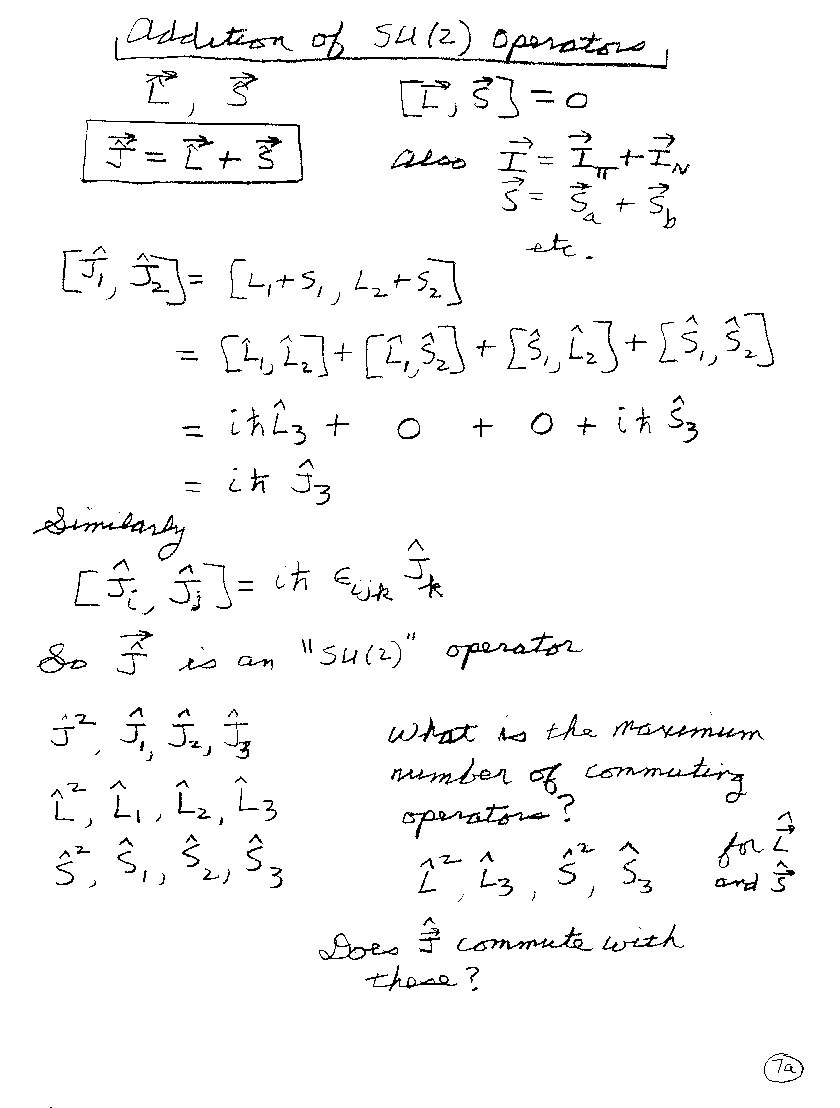 Addition of SU(2) Operators
L⃗, S⃗ [L⃗, S⃗] = 0
Ĵ⃗ = L⃗ + S⃗ Also I⃗ = I⃗_π + I⃗_N
S⃗ = S⃗_a + S⃗_b
etc.
[Ĵ₁, Ĵ₂] = [L₁+S₁, L₂+S₂]
= [L̂₁, L̂₂] + [L̂₁, Ŝ₂] + [Ŝ₁, L̂₂] + [Ŝ₁, Ŝ₂]
= iħL̂₃ + 0 + 0 + iħ Ŝ₃
= iħ Ĵ₃
Similarly
[Ĵᵢ, Ĵⱼ] = iħ ε_ijk Ĵ_k
So Ĵ⃗ is an "SU(2)" operator
Ĵ², Ĵ₁, Ĵ₂, Ĵ₃
L̂², L̂₁, L̂₂, L̂₃
Ŝ², Ŝ₁, Ŝ₂, Ŝ₃
What is the maximum
number of commuting
operators?
L̂², L̂₃, Ŝ², Ŝ₃ for L̂⃗
and Ŝ⃗
Does Ĵ⃗ commute with
these?
7a